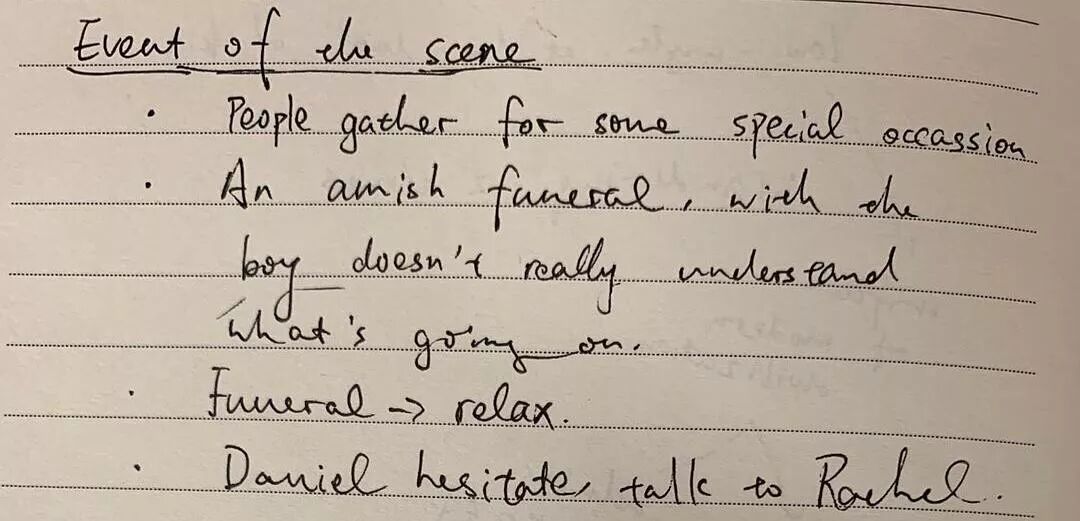 Event of the scene
· People gather for some special occassion
· An amish funeral, with the
boy doesn't really understand
what's going on.
· Funeral -> relax.
· Daniel hesitate, talk to Rachel.